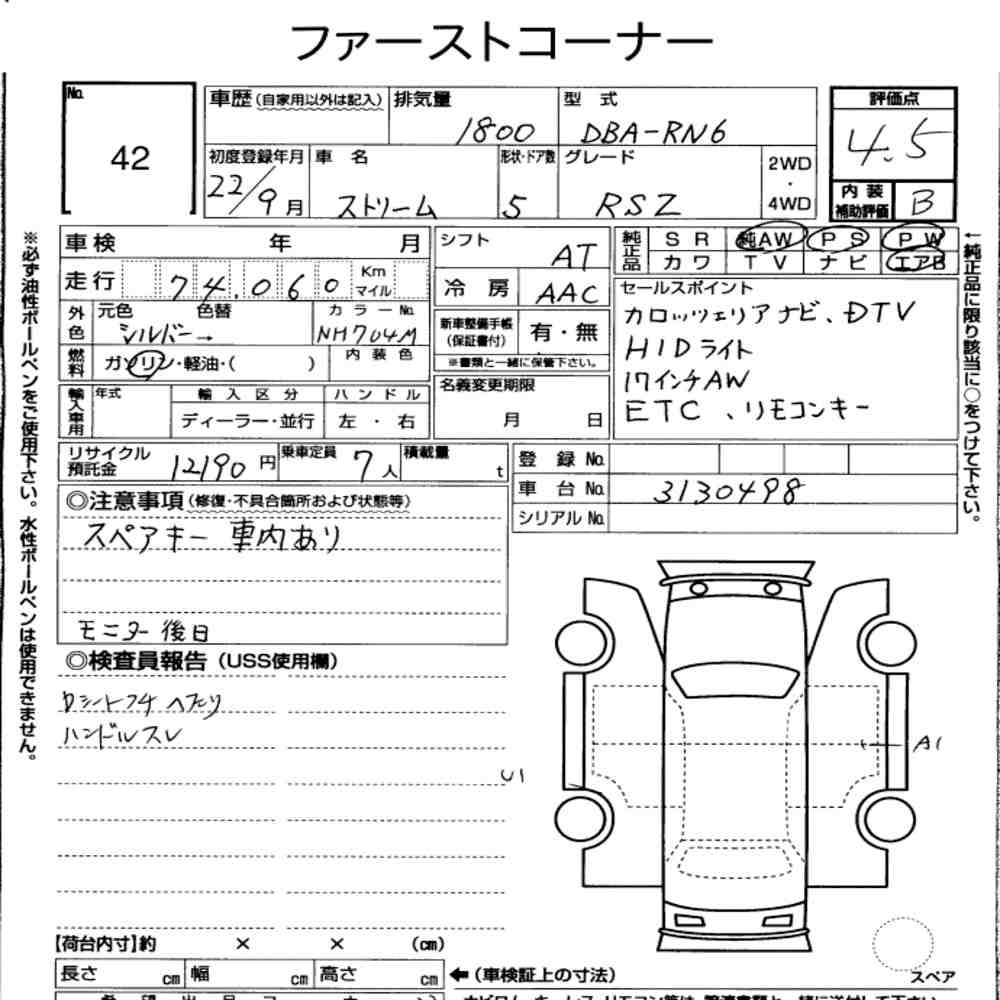 ファーストコーナー
No. 42
車歴(自家用以外は記入)
排気量 1800
型式 DBA-RN6
評価点 4.5
初度登録年月 22/9月
車名 ストリーム
形状・ドア数 5
グレード RSZ
2WD・4WD
内装補助評価 B
車検 年 月
シフト AT
純正品 SR 純AW PS PW
カワ TV ナビ エアB
走行 74.060 Km マイル
冷房 AAC
セールスポイント
カロッツェリアナビ、DTV
HIDライト
17インチAW
ETC、リモコンキー
外色 元色 シルバー→ 色替
カラーNo. NH704M
新車整備手帳(保証書付) 有・無
※書類と一緒に保管下さい。
燃料 ガソリン・軽油・( )
内装色
名義変更期限 月 日
輸入車用 年式
輸入区分 ディーラー・並行
ハンドル 左・右
リサイクル預託金 12190円
乗車定員 7人
積載量 t
登録No.
車台No. 3130498
シリアルNo.
◎注意事項(修復・不具合箇所および状態等)
スペアキー 車内あり
モニター後日
◎検査員報告(USS使用欄)
Dシートフチ ヘタリ
ハンドルスレ
U1
A1
【荷台内寸】約 × × (cm)
長さ cm 幅 cm 高さ cm
←(車検証上の寸法)
スペア
※必ず油性ボールペンをご使用下さい。水性ボールペンは使用できません。
←純正品に限り該当に○をつけて下さい。